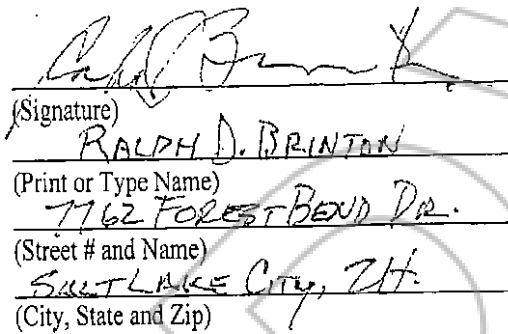 (Signature)
RALPH D. BRINTON
(Print or Type Name)
7762 FOREST BEND DR.
(Street # and Name)
SALT LAKE CITY, UT.
(City, State and Zip)